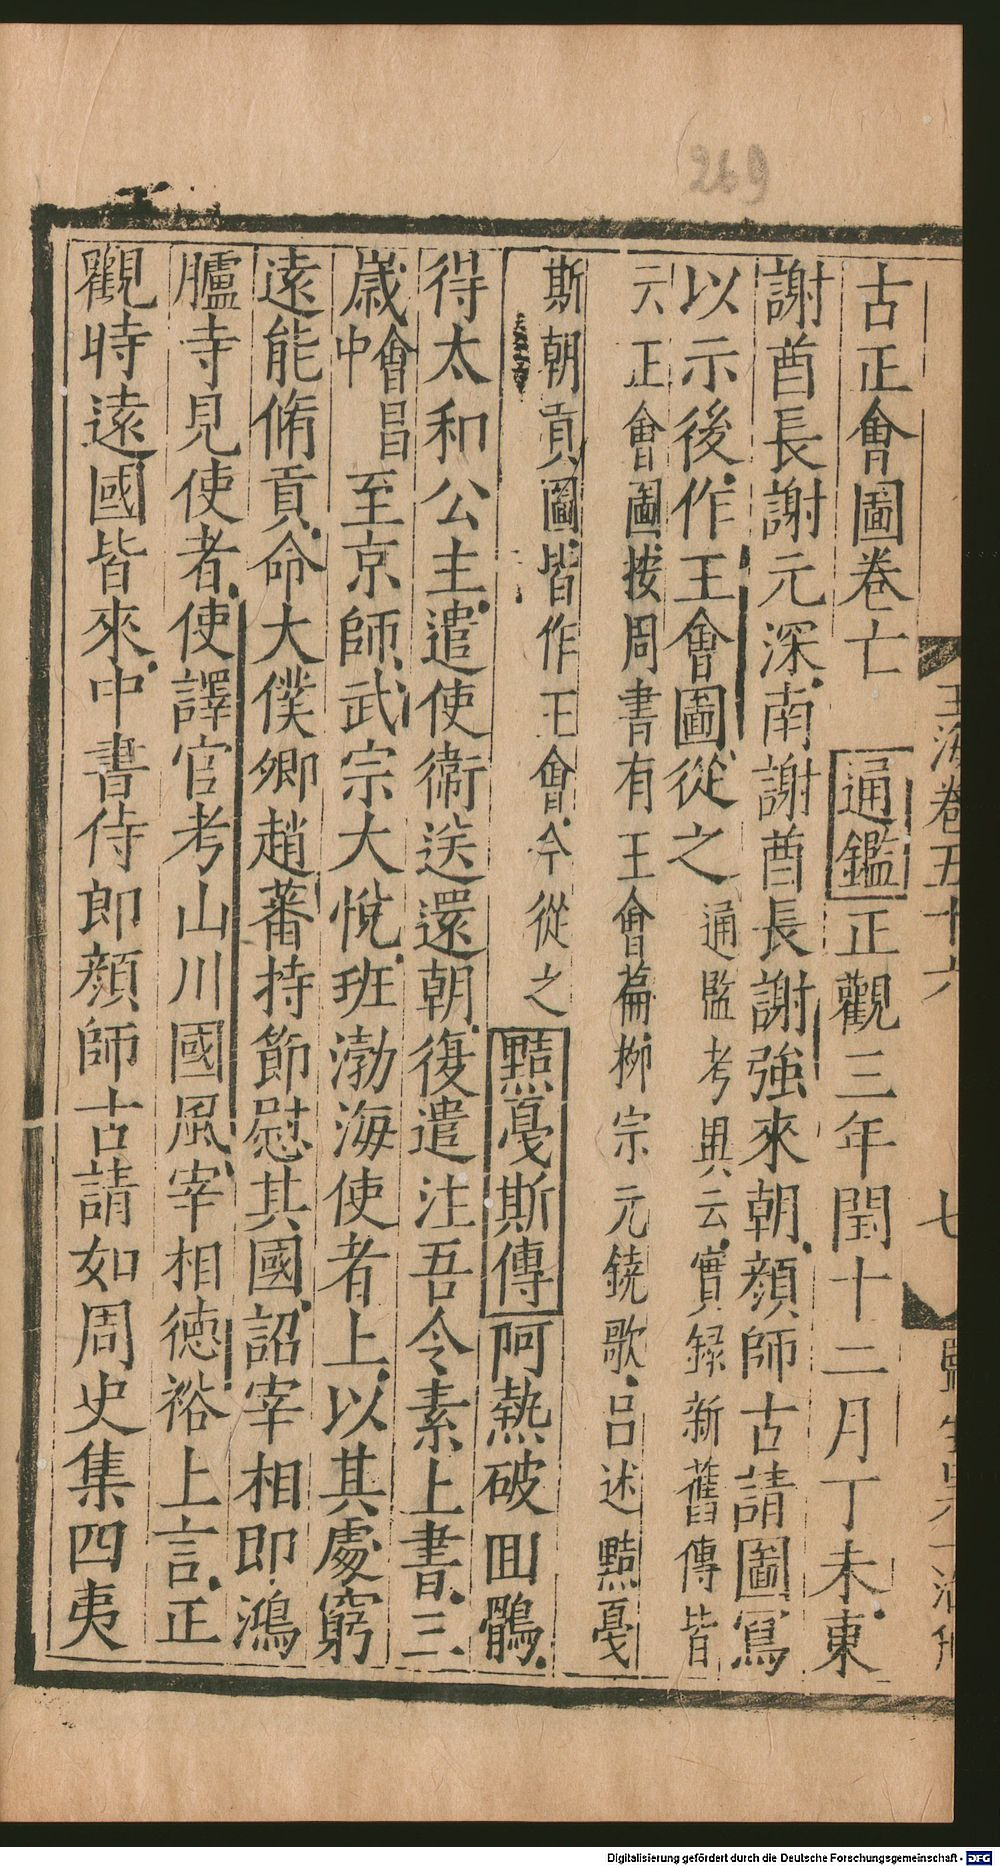 269
玉海卷五十六
七
古正會圖卷亡 通鑑正觀三年閏十二月丁未東
謝酋長謝元深南謝酋長謝強來朝顔師古請圖寫
以示後作王會圖從之 通監考異云實録新舊傳皆
云正會圖按周書有王會篇栁宗元鐃歌吕述黠戛
斯朝貢圖皆作王會今從之 黠戛斯傳 阿熱破囬鶻
得太和公主遣使衞送還朝復遣注吾令素上書三
歲會昌中至京師武宗大悅班渤海使者上以其處窮
逺能脩貢命大僕卿趙蕃持節慰其國詔宰相即鴻
臚寺見使者使譯官考山川國風宰相徳裕上言正
觀時逺國皆來中書侍郎顔師古請如周史集四夷
Digitalisierung gefördert durch die Deutsche Forschungsgemeinschaft - DFG